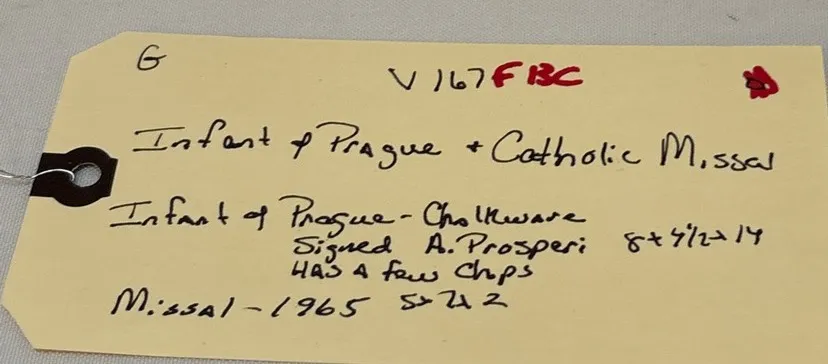 G
V167 FBC
Infant of Prague + Catholic Missal
Infant of Prague - Chalkware
Signed A. Prosperi 8x4½x14
HAS A few Chips
Missal - 1965 5x7x2